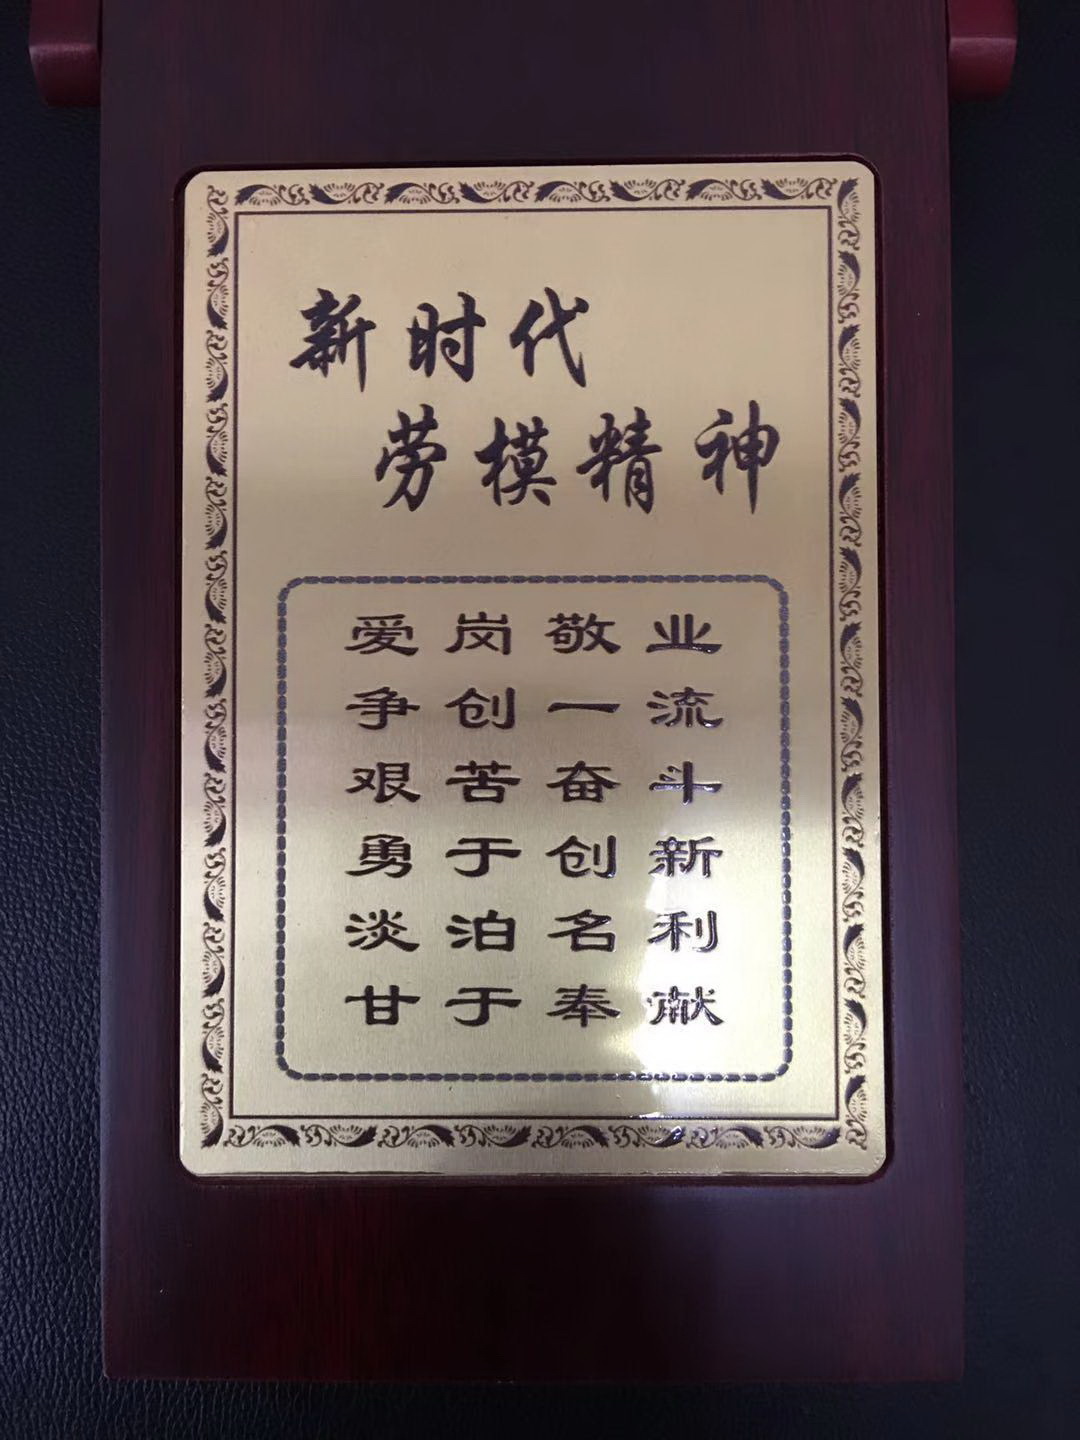 新时代
劳模精神
爱岗敬业
争创一流
艰苦奋斗
勇于创新
淡泊名利
甘于奉献